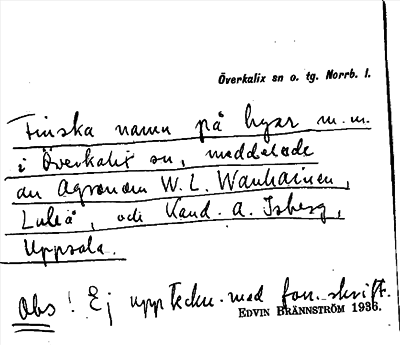 Överkalix sn o. tg. Norrb. l.
Finska namn på byar m.m.
i Överkalix sn, meddelade
av Agronom W. L. Wanhainen,
Luleå, och Kand. A. Isberg,
Uppsala.
Obs! Ej uppteckn. med fon. skrift.
EDVIN BRÄNNSTRÖM 1936.